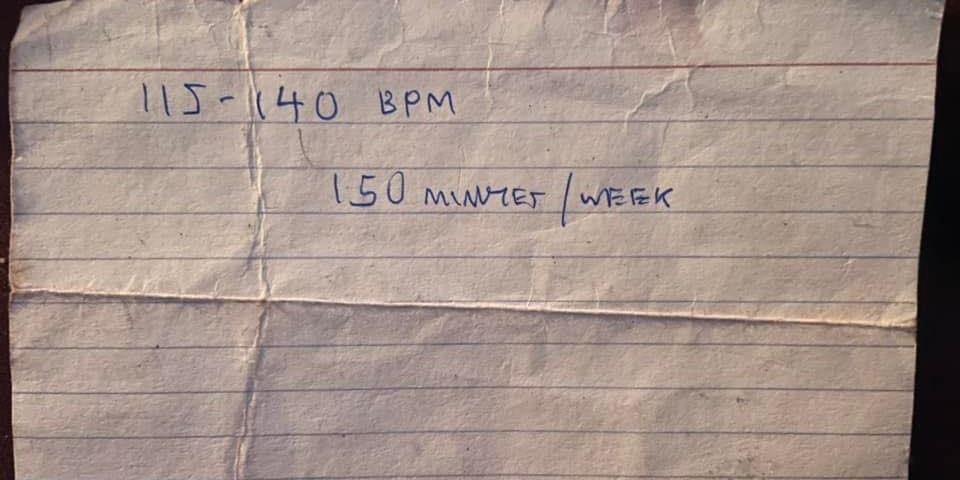 115-140 BPM
150 MINUTES/WEEK